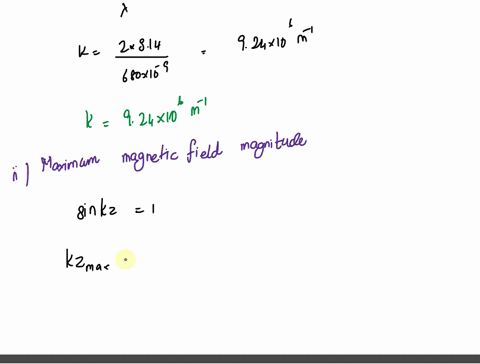 λ
K = 2×3.14 / 680×10⁻⁹ = 9.24×10⁶ m⁻¹
k = 9.24×10⁶ m⁻¹
ii) Maximum magnetic field magnitude
sinkz = 1
kz max